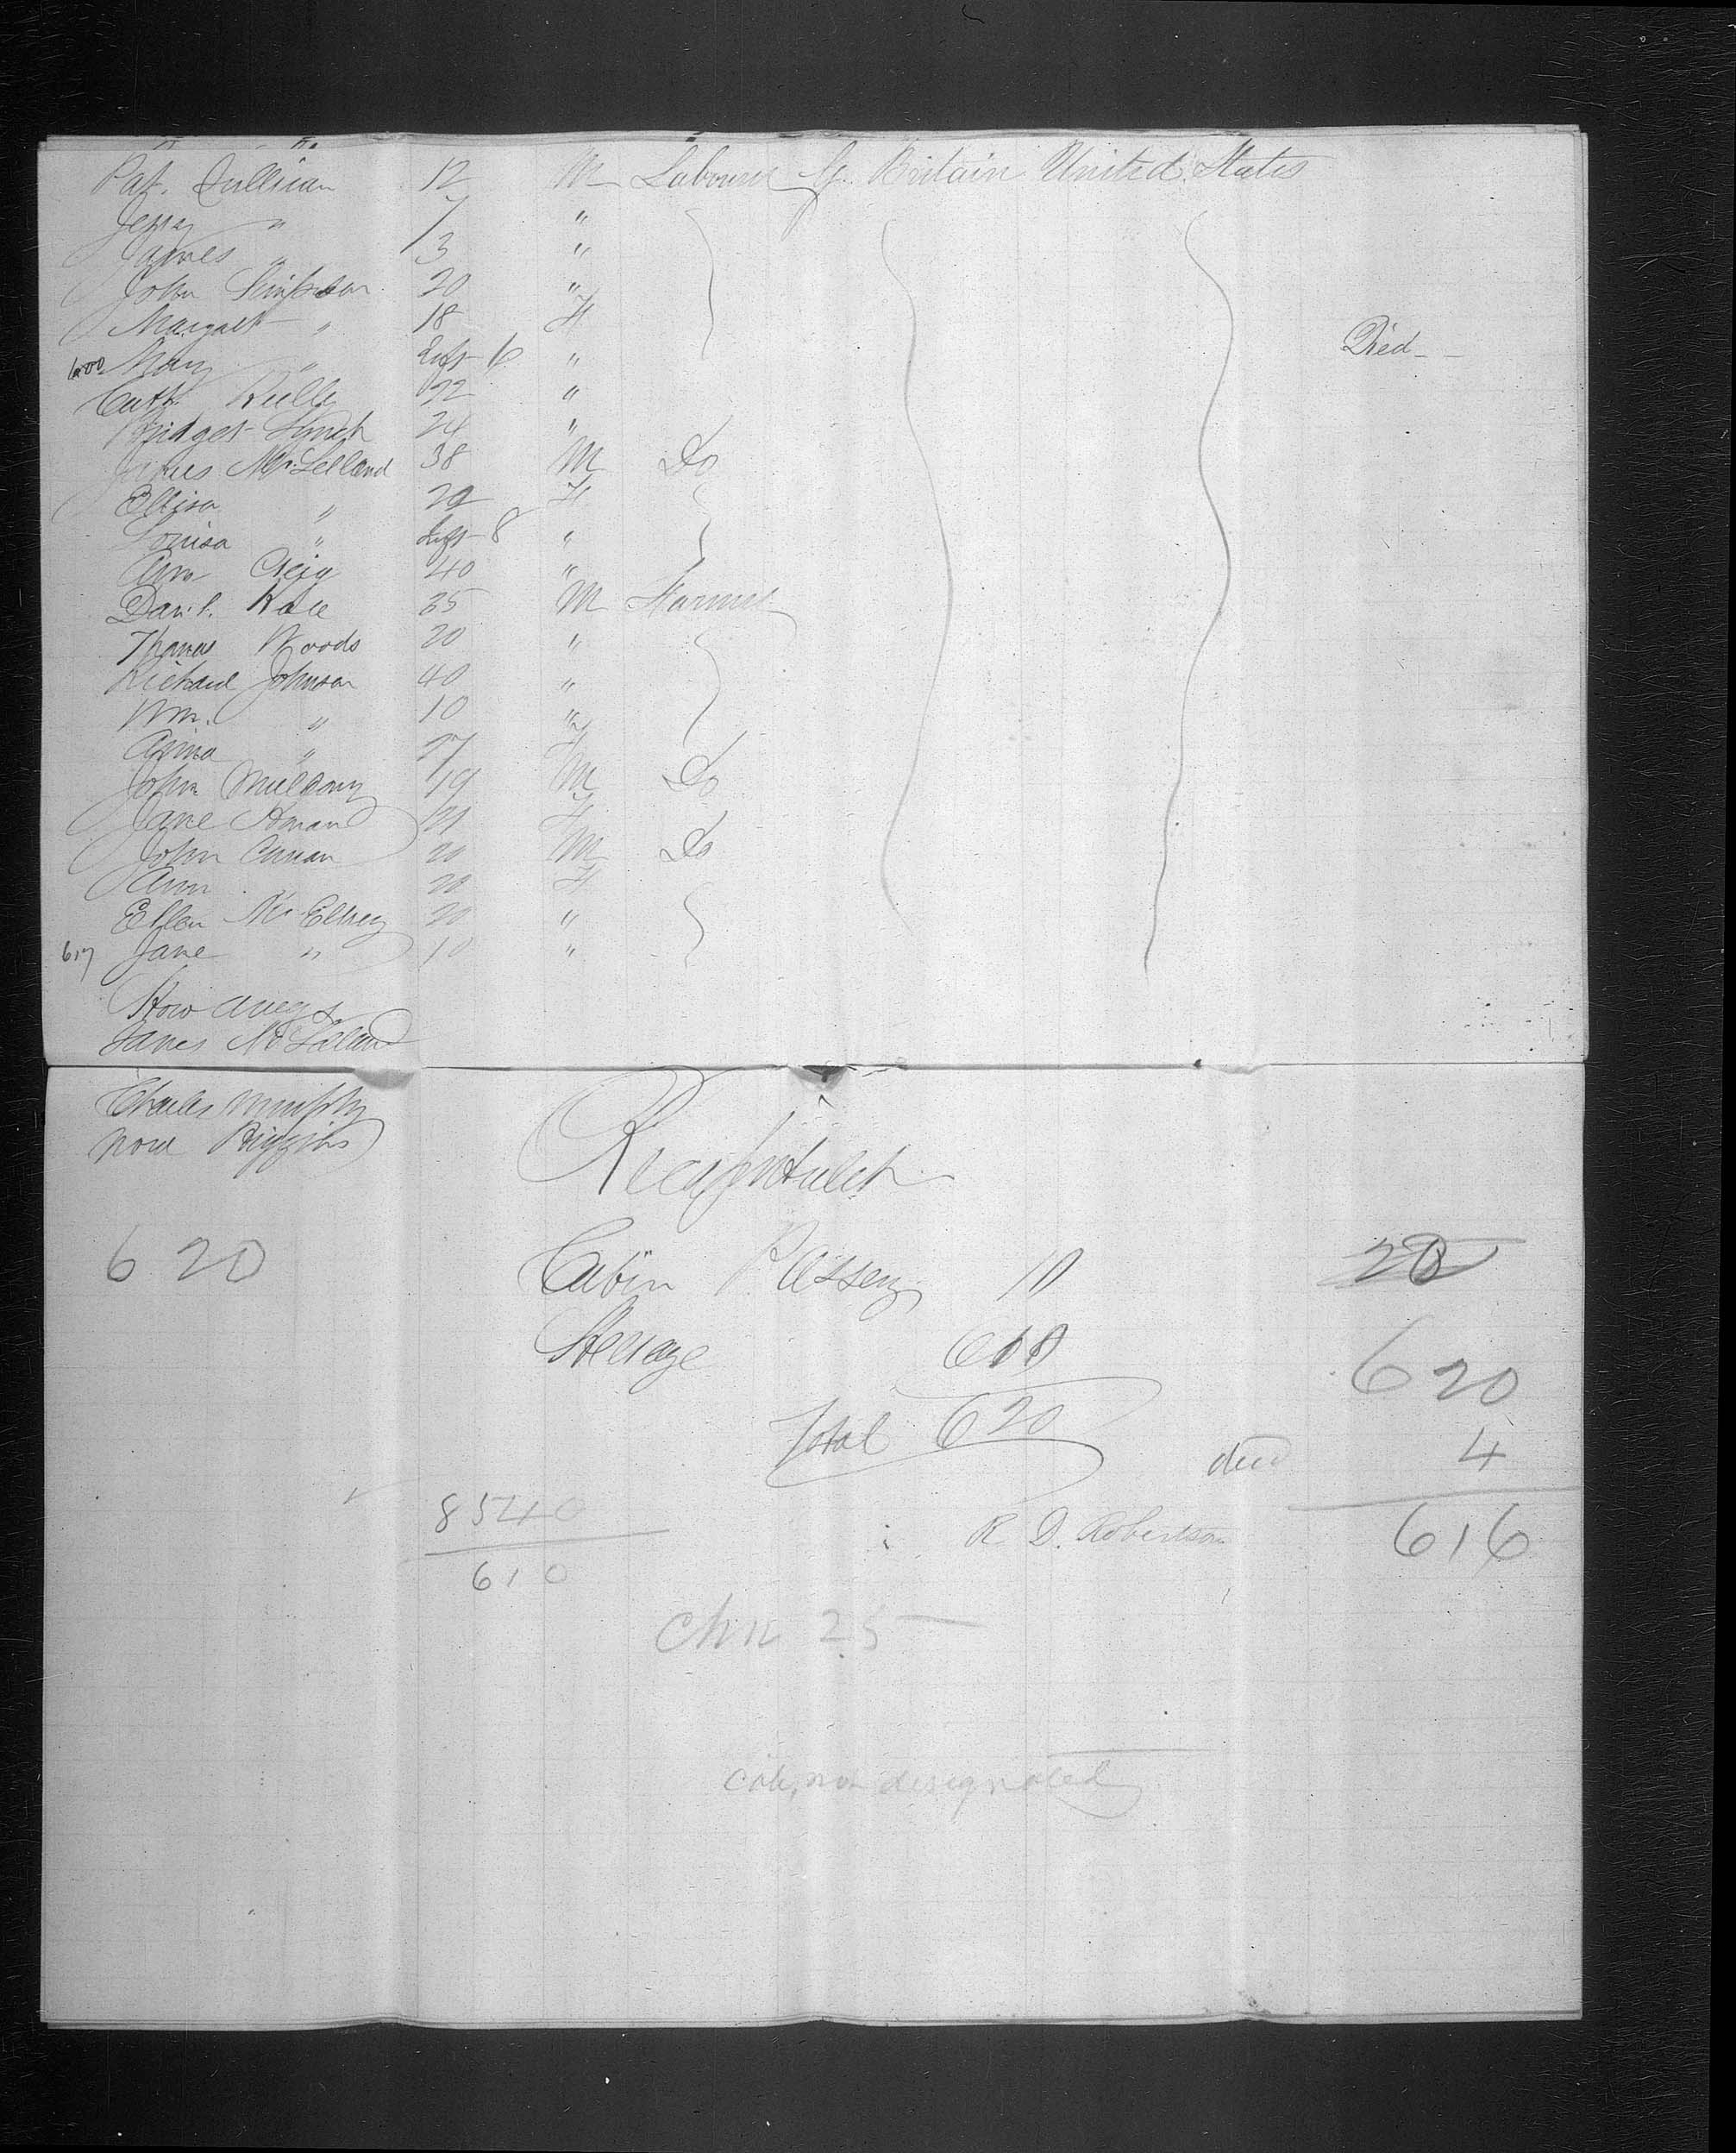 Pat. Sullivan 12 M Labourer G. Britain United States
Jerry " 7 "
James " 3 "
John Simpson 20 "
Margaret " 18 F
600 Mary " Inft 6 " Died
Cath. Kelly 22 "
Bridget Lynch 24 "
James McLelland 38 M Do
Elliza " 29 F
Louisa " Inft 8 "
Ann 40 "
Danl. 35 M Farmer
Thomas Woods 20 "
Richard Johnson 40 "
Wm. " 10 "
Anna " 27 F
John 19 M Do
Jane 21 F
John Curran 20 M Do
Ann 20 F
Ellen McElhey 20 "
617 Jane " 10 "
Stow aways
James McLelland
Charles Murphy
Nora Higgins
Recapitulat
620
Cabin Passeng 10 20
Steerage 610
620
Total 620
died 4
616
8540
610
R D. Robertson
25
not designated